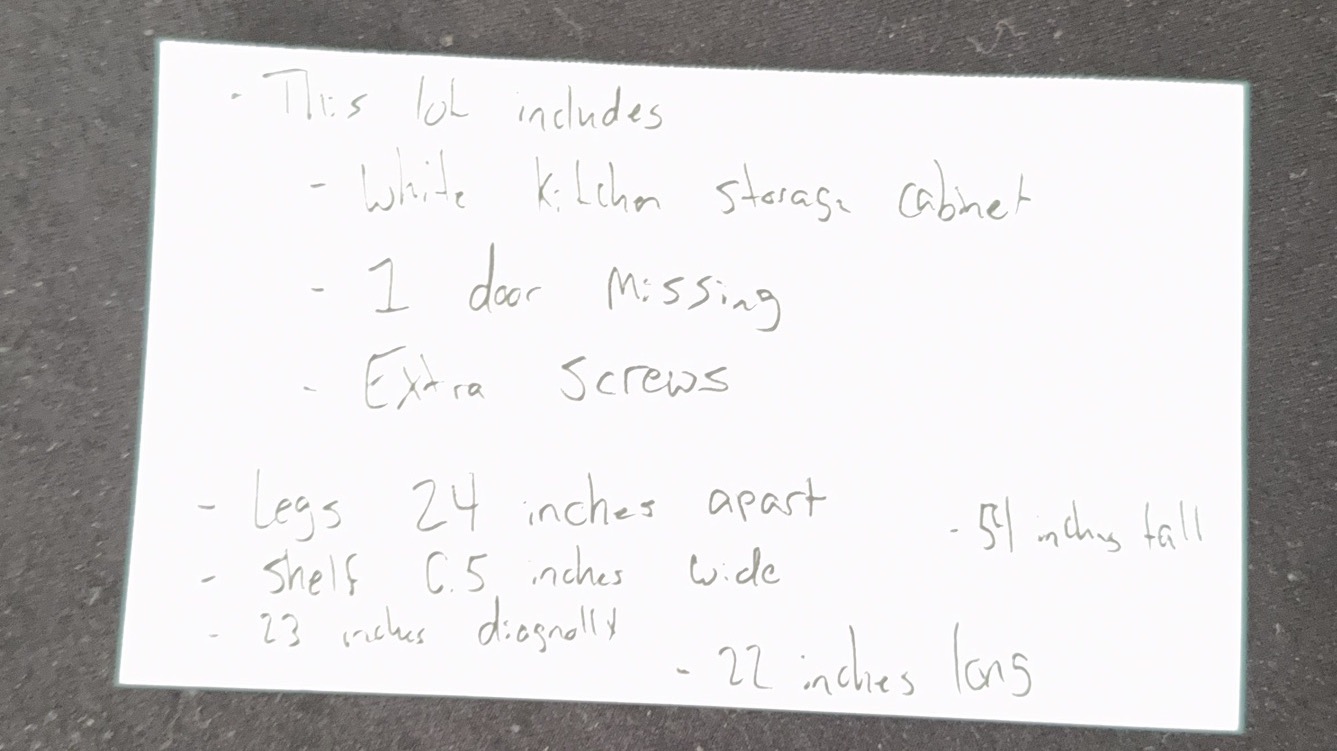 - This lot includes
- White Kitchen storage cabinet
- 1 door missing
- Extra screws
- Legs 24 inches apart
- 54 inches tall
- Shelf 6.5 inches wide
- 23 inches diagnolly
- 22 inches long